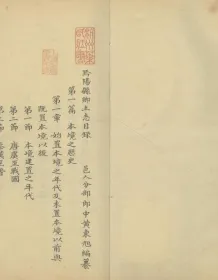 黔陽縣鄉土志目錄
邑人分部郎中黃東旭編纂
第一篇 本境之歷史
第一章 始置本境之年代及未置本境以前與
既置本境以後
第一節 本境建置之年代
第二節 唐虞至戰國